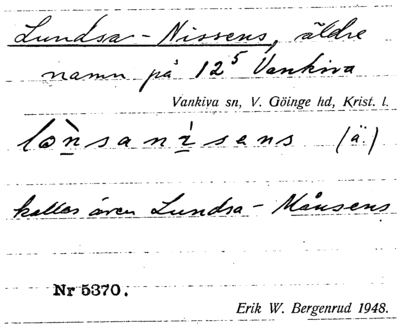 Lundsa-Nissens, äldre
namn på 12⁵ Vankiva
Vankiva sn, V. Göinge hd, Krist. l.
lo̊ǹsanìsens (ä.)
kallas även Lundsa-Månsens
Nr 5370.
Erik W. Bergenrud 1948.